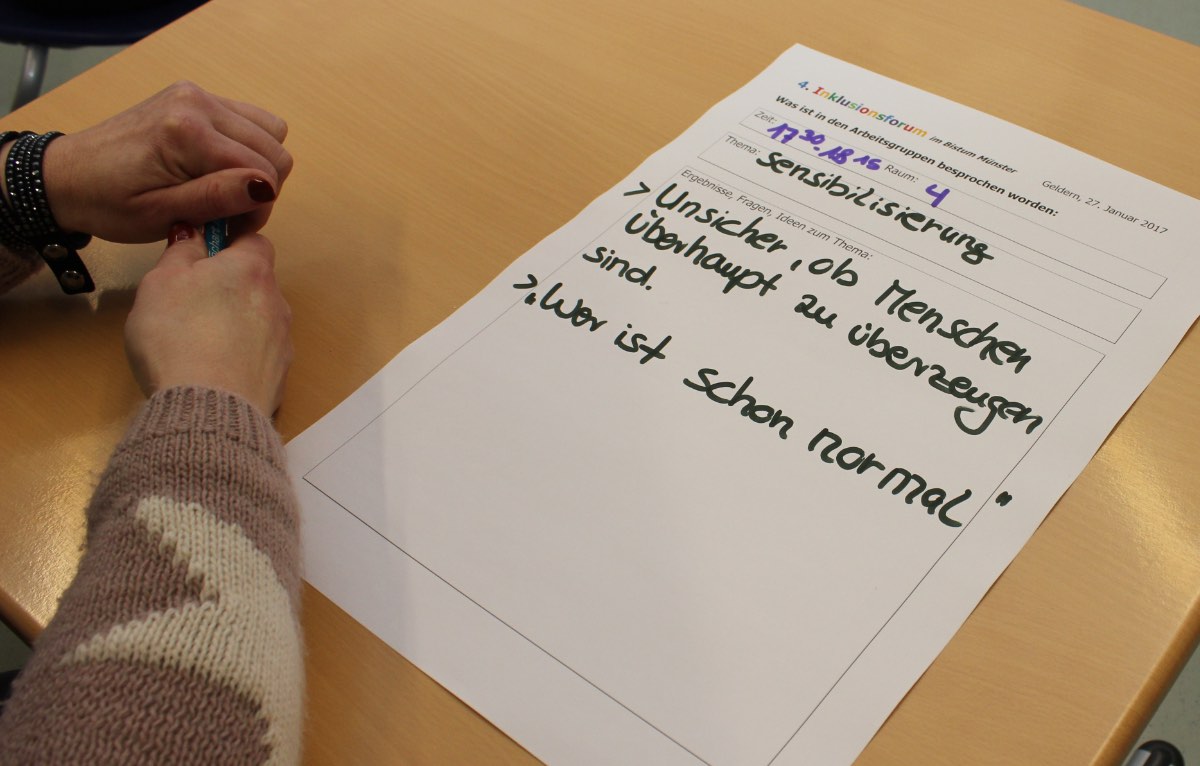 4. Inklusionsforum im Bistum Münster
Geldern, 27. Januar 2017
Was ist in den Arbeitsgruppen besprochen worden:
Zeit: 17 30 - 18 15 Raum: 4
Thema: sensibilisierung
Ergebnisse, Fragen, Ideen zum Thema:
> Unsicher, ob Menschen
überhaupt zu überzeugen
sind.
> „Wer ist schon normal"